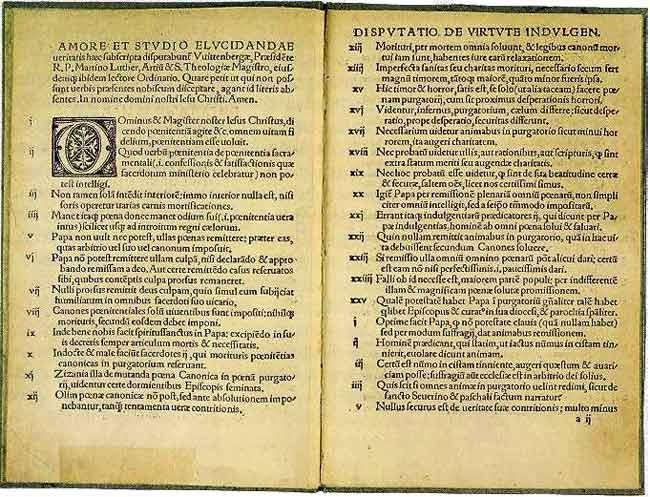 AMORE ET STVDIO ELVCIDANDAE
ueritatis haec subscripta disputabunť Vuittenbergæ, Præsidéte
R. P. Martino Luther, Artiũ & S. Theologiæ Magistro, eius-
demq́ ibidem lectore Ordinario. Quare petit ut qui non pos-
sunt uerbis præsentes nobiscum disceptare, agant id literis ab-
sentes. In nomine domini nostri Iesu Christi. Amen.
i DOminus & Magister noster Iesus Christus, di-
cendo pœnitentiã agite &c. omnem uitam fi
delium, pœnitentiam esse uoluit.
ij Quod uerbũ pœnitentia de pœnitentia sacra-
mentali (.i. confessionis & satisfactionis quæ
sacerdotum ministerio celebratur) non po-
test intelligi.
iij Non tamen solã intẽdit interiorẽ: immo interior nulla est, nisi
foris operetur uarias carnis mortificationes.
iiij Manet itaq́ pœna donec manet odium sui (.i. pœnitentia uera
intus) scilicet usq́ ad introitum regni cælorum.
v Papa non uult nec potest, ullas pœnas remittere: præter eas,
quas arbitrio uel suo uel canonum imposuit.
vj Papa nõ potest remittere ullam culpã, nisi declarãdo & appro
bando remissam a deo. Aut certe remittẽdo casus reseruatos
sibi, quibus contẽptis culpa prorsus remaneret.
vij Nulli prorsus remittit deus culpam, quin simul eum subijciat
humiliatum in omnibus sacerdoti suo uicario.
viij Canones pœnitentiales solũ uiuentibus sunt impositi; nihilq́
morituris, secundũ eosdem debet imponi.
ix Inde bene nobis facit spiritussanctus in Papa: excipiẽdo in su-
is decretis semper articulum mortis & necessitatis.
x Indocte & male faciũt sacerdotes ij, qui morituris pœnitẽtias
canonicas in purgatorium reseruant.
xj Zizania illa de mutanda pœna Canonica in pœnã purgato-
rij, uidentur certe dormientibus Episcopis seminata.
xij Olim pœnæ canonicæ nõ post, sed ante absolutionem impo-
nebantur, tanq̃ tentamenta ueræ contritionis.
DISPVTATIO. DE VIRTVTE INDVLGEN.
xiij Morituri, per mortem omnia soluunt, & legibus canonũ mor-
tui iam sunt, habentes iure earũ relaxationem.
xiiij Imperfecta sanitas seu charitas morituri, necessario secum fert
magnũ timorem, tãtoq́ maiorẽ, quãto minor fuerit ipsa.
xv Hic timor & horror, satis est, se solo (ut alia taceam) facere pœ-
nam purgatorij, cum sit proximus desperationis horrori.
xvj Videntur, infernus, purgatorium, cælum differre; sicut despe-
ratio, prope desperatio, securitas differunt.
xvij Necessarium uidetur animabus in purgatorio sicut minui hor
rorem, ita augeri charitatem.
xviij Nec probatũ uidetur ullis, aut rationibus, aut scripturis, q̃ sint
extra statum meriti seu augendæ charitatis.
xix Nec hoc probatũ esse uidetur, q̃ sint de sua beatitudine certæ
& securæ, saltem oẽs, licet nos certissimi simus.
xx Igiť Papa per remissionẽ plenariã omniũ pœnarũ, non simpli
citer omniũ intelligit, sed a seipso tñmodo impositarũ.
xxj Errant itaq́ indulgentiarũ prædicatores ij, qui dicunt per Pa-
pæ indulgentias, hominẽ ab omni pœna solui & saluari.
xxij Quin nullam remittit animabus in purgatorio, quã in hac ui-
ta debuissent secundum Canones soluere.
xxiij Si remissio ulla omnium omnino pœnarũ põt alicui dari; certũ
est eam nõ nisi perfectissimis, i. paucissimis dari.
xxiiij Falli ob id necesse est, maiorem partẽ populi: per indifferentẽ
illam & magnificam pœnæ solutæ promissionem.
xxv Qualẽ potestatẽ habet Papa ĩ purgatoriũ gñaliter talẽ habet
q̃libet Episcopus & curat9 in sua diocesi, & parochia sp̃aliter.
i Optime facit Papa, q̃ nõ potestate clauis (quã nullam habet)
sed per modum suffragij, dat animabus remissionem.
ij Hominẽ prædicant, qui statim, ut iactus nũmus in cistam tin-
nierit, euolare dicunt animam.
iij Certũ est nũmo in cistam tinniente, augeri quæstum & auari-
ciam posse; suffragiũ aũt ecclesiæ est in arbitrio dei solius.
iiij Quis scit si omnes animæ in purgatorio uelint redimi, sicut de
sancto Seuerino & paschali factum narratur
v Nullus securus est de ueritate suæ contritionis; multo minus
a ij